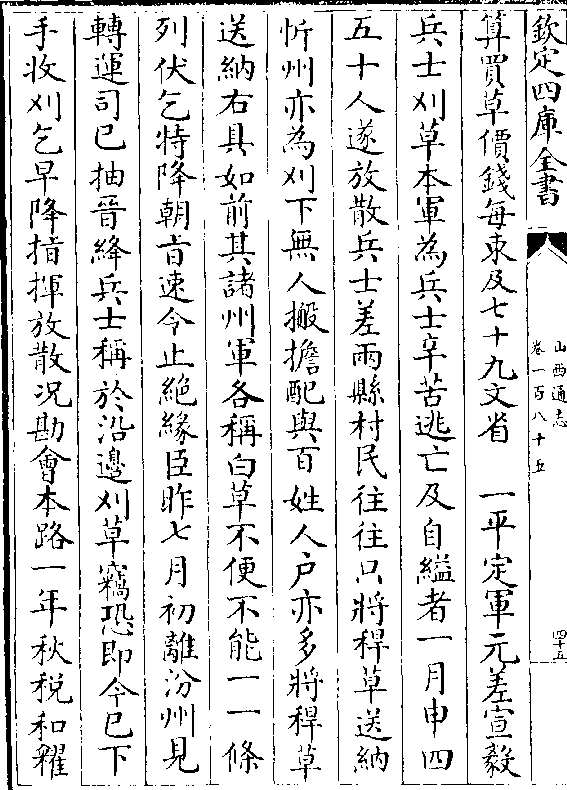 欽定四庫全書
山西通志
卷一百八十五
四十五
算買草價錢每束及七十九文省　一平定軍元差宣毅
兵士刈草本軍為兵士辛苦逃亡及自縊者一月申四
五十人遂放散兵士差兩縣村民往往只將稈草送納
忻州亦為刈下無人搬擔配與百姓人户亦多將稈草
送納右具如前其諸州軍各稱白草不便不能一一條
列伏乞特降朝㫖速令止絶緣臣昨七月初離汾州見
轉運司已抽晉絳兵士稱於沿邊刈草竊恐即今已下
手收刈乞早降指揮放散况勘會本路一年秋税和糴